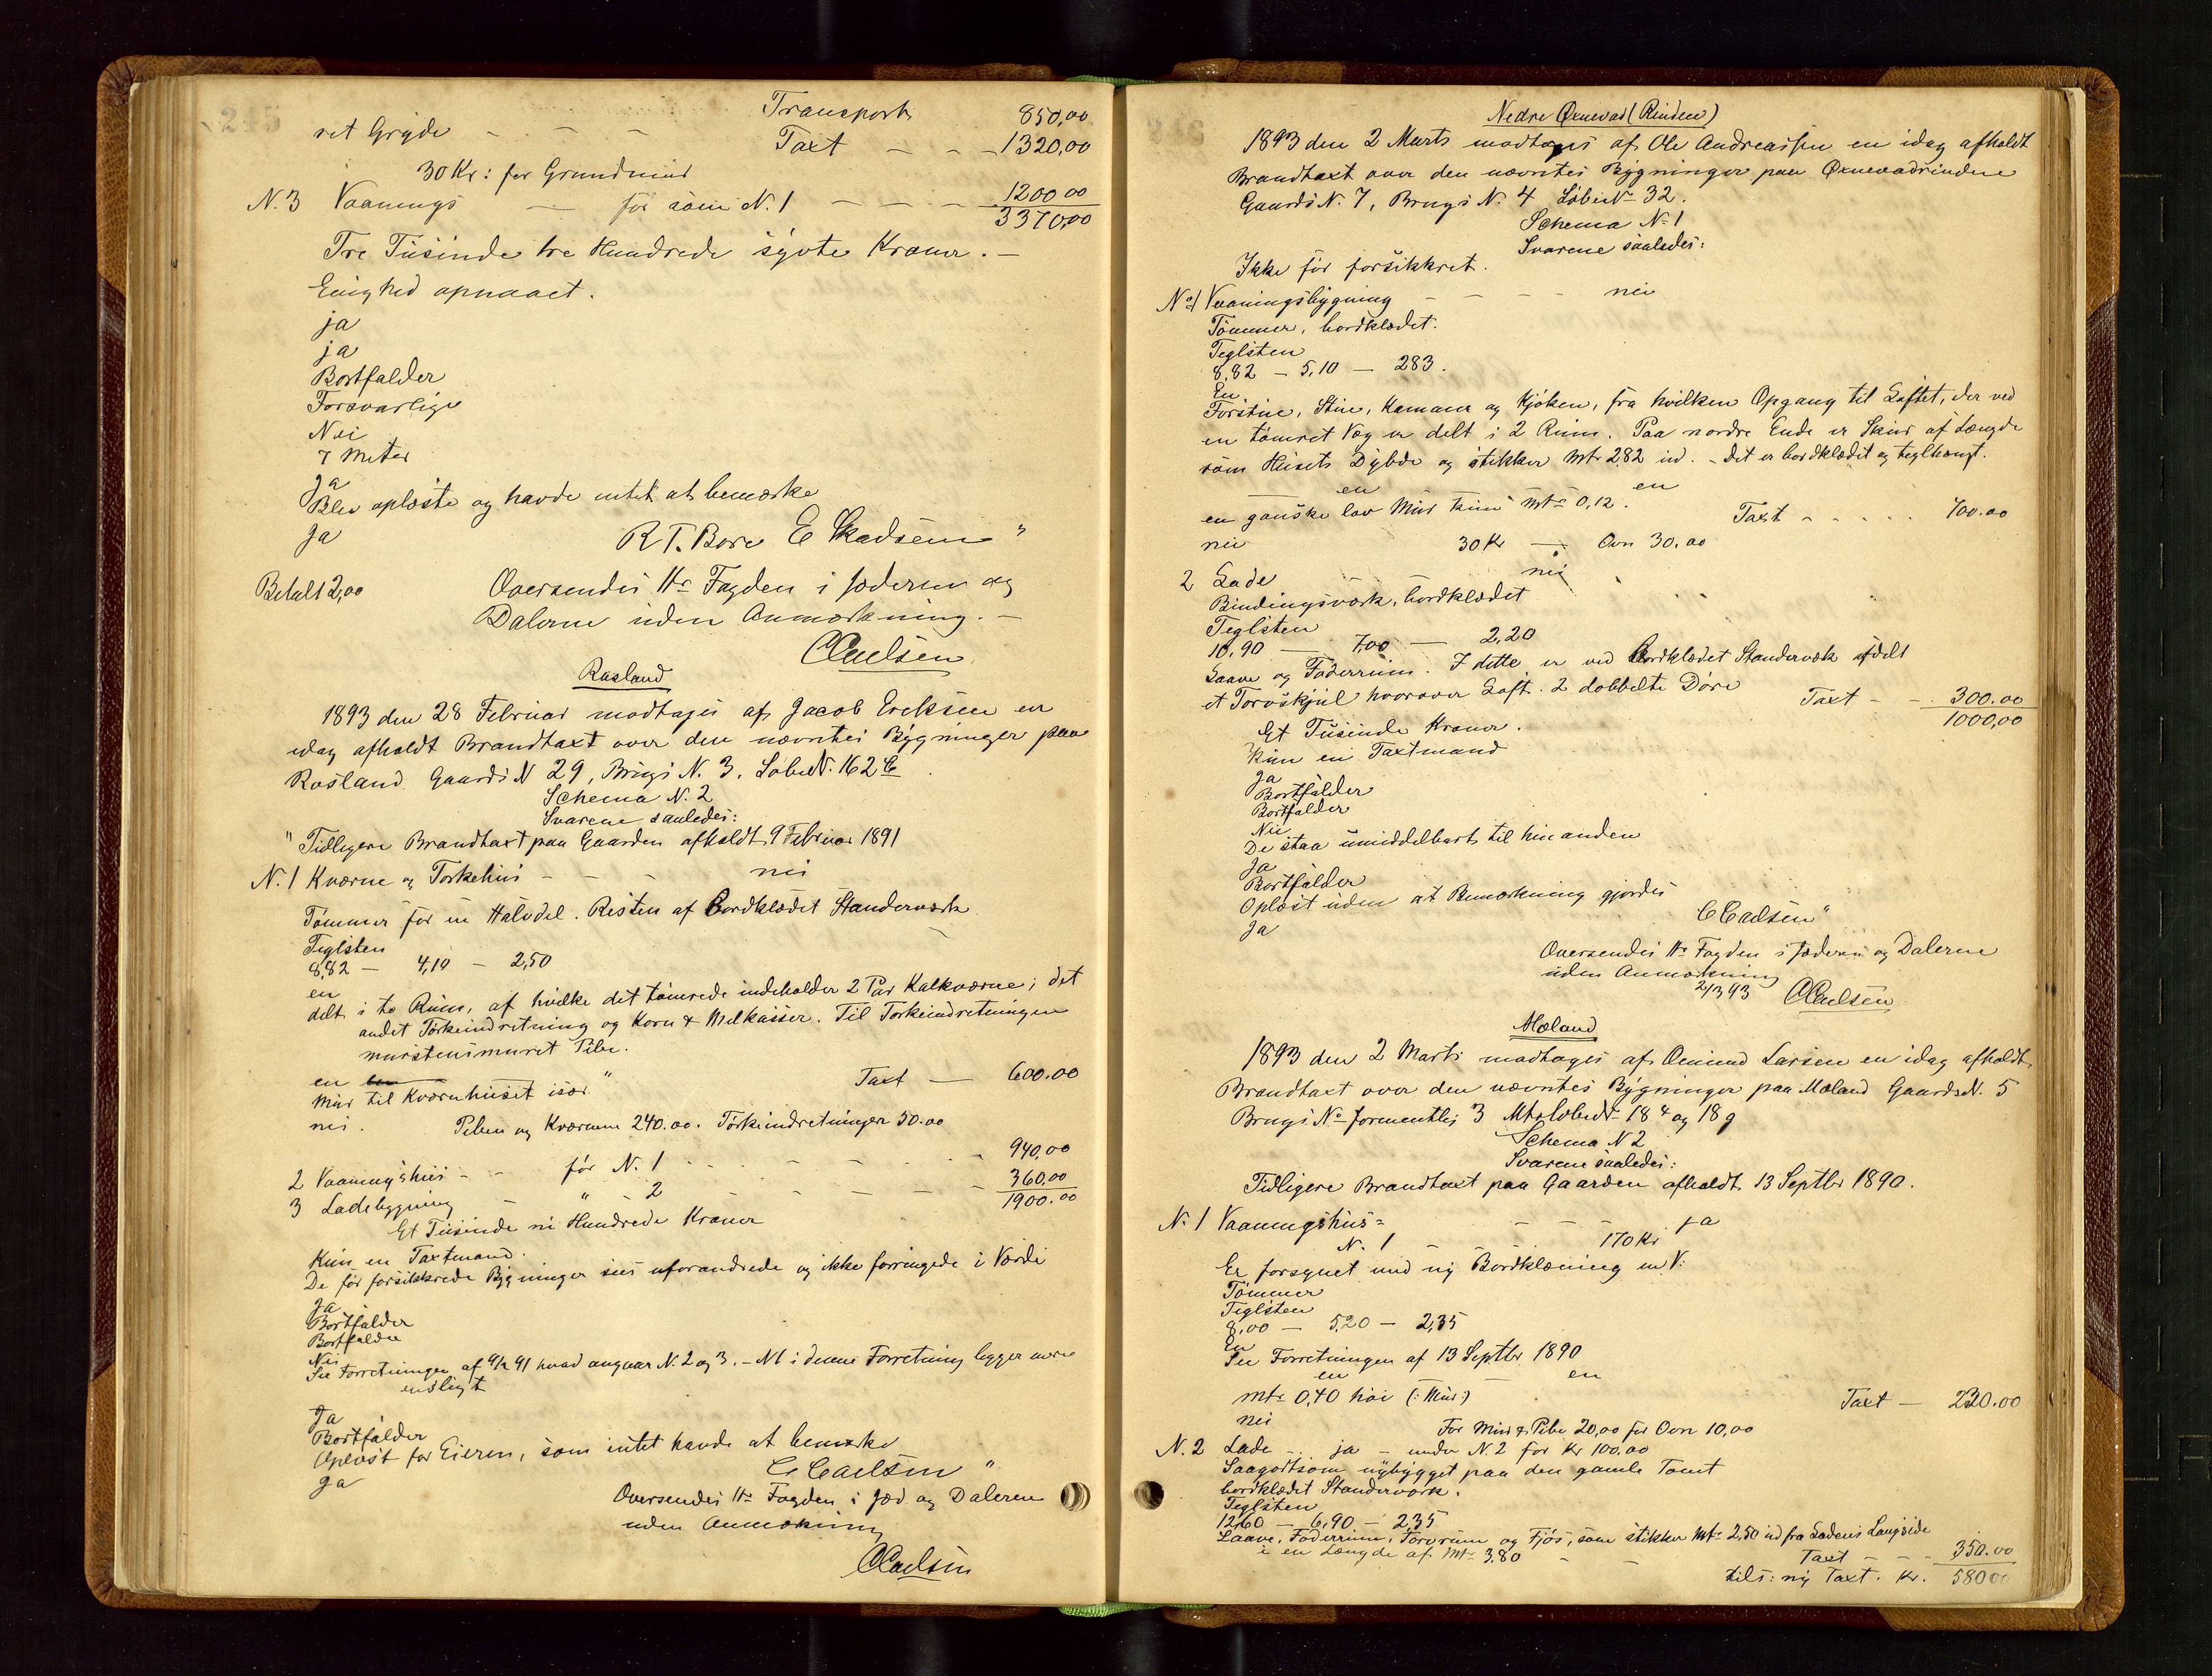 Transport 850,00
ret Gryde - - - Taxt - - - 1320,00
30 Kr: for Grundmur
N. 3 Vaanings — før som N. 1 - - - - 1200 00
3370,00
Tre Tusinde tre Hundrede syvte Kroner. —
Enighed opnaaet.
ja
ja
Bortfalder
Forsvarlige
Nei
7 Meter
Ja
Blev oplæste og havde intet at bemærke
Ja
R T. Bore E Skadsem "
Betalt 2,00
Oversendes Hr Fogden i Jæderen og
Dalerne uden Anmærkning. —
CCarlsen
Rosland
1893 den 28 Februar modtages af Jacob Ereksen en
idag afholdt Brandtaxt over den nævntes Bygninger paa
Rosland Gaards N 29, Brugs N. 3. LøbeN. 162 C
Schema N. 2
Svarene saaledes:
" Tidligere Brandtaxt paa Gaarden afholdt 9 Februar 1891
N. 1 Kværne og Torkehus - - - nei
Tømmer før en Halvdel. Resten af Bordklædet Standerværk
Teglsten
8,82 — 4,10 — 2,50
en
delt i to Rum, af hvilke det tømrede indeholder 2 Par Kalkværne; det
andet Tørkeindretning og Korn & Melkasser. Til Torkeindretningen
murstensmuret Pibe.
en
Mur til Kværnhuset især " Taxt — 600.00
nei. Piben og Kværnene 240.00. Tørkeindretningen 50.00
940,00
2 Vaaningshus - - før N. 1 - - - - - 360,00
3 Ladebygning - " - 2 - - - - - 1900.00
Et Tusinde ni Hundrede Kroner
Kun en Taxtmand.
De før forsikkrede Bygninger sees uforandrede og ikke forringede i Værdi
Ja
Bortfalder
Bortfalder
Nei
See Forretningen af 9/2 91 hvad angaar N. 2 og 3. — N 1 i denne Forretning ligger mere
ensligt
Ja
Bortfalder
Oplæst for Eieren, som intet havde at bemærke
Ja
C Carlsen "
Oversendes Hr Fogden i Jæd og Dalerne
uden Anmærkning
CCarlsen
Nedre Øxnevad (Rinden)
1893 den 2 Marts modtages af Ole Andreassen en idag afholdt
Brandtaxt over den nævntes Bygninger paa Øxnevadrindene
Gaards N. 7, Brugs N. 4 LøbeN 32.
Schema N. 1
Svarene saaledes:
Ikke før forsikkret.
No 1 Vaaningsbygning - - - - nei
Tømmer, bordklædet.
Teglsten
8,82 — 5,10 — 283.
En
Forstue, Stue, Kammer og Kjøken, fra hvilken Opgang til Loftet, der ved
en tømret Væg er delt i 2 Rum. Paa nordre Ende er Skur af Længde
som Husets Dybde og stikker Mtr 2,82 ud. - Det er bordklædet og teglhængt.
en en
en ganske lav Mur kun Mtr 0,12. Taxt - - - - - 700.00
nei 30 Kr — Ovn 30,00
2 Lade nei
Bindingsværk, bordklædet
Teglsten
10,90 — 7,00 — 2,20
Laave og Foderrum. I dette er ved Bordklædet Standerværk afdelt
et Torvskjul hvorover Loft. 2 dobbelte Døre Taxt - - 300.00
1000,00
Et Tusinde Kroner.
Kun en Taxtmand
Ja
Bortfalder
Bortfalder
Nei
De staa umiddelbart til hinanden
Ja
Bortfalder
Oplæst uden at Bemærkning gjordes
Ja
C Carlsen "
Oversendes Hr Fogden i Jæderen og Dalerne
uden Anmærkning
2/3 93 CCarlsen
Mæland
1893 den 2 Marts modtages af Omund Larsen en idag afholdt
Brandtaxt over den nævntes Bygninger paa Mæland GaardsN. 5
Brugs No formentlig 3 Mtr LøbeN 18 4 og 18 g
Schema N 2
Svarene saaledes:
Tidligere Brandtaxt paa Gaarden afholdt 13 Septbr 1890.
N. 1 Vaaningshus - - - ja
N. 1 - - - 170 Kr
Er forsynet med ny Bordklæning m V:
Tømmer
Teglsten
8,00 — 5,20 — 2,35
En
See Forretningen af 13 Septbr 1890
en en
mtr 0,40 høi (: Mur :) Taxt — 230.00
nei For Mur & Pibe 20,00 for Ovn 10,00
N. 2 Lade - . ja - under N. 2 for Kr 100,00
Saagodtsom nybygget paa den gamle Tomt
bordklædet Standerværk.
Teglsten
12,60 — 6,90 — 2,35
Laave, Foderrum, Torvrum og Fjøs, som stikker Mtr 2,50 ud fra Ladens Langside
i en Længde af Mtr 3,80 Taxt - - - 350.00
tils: ny Taxt. Kr. 580 00